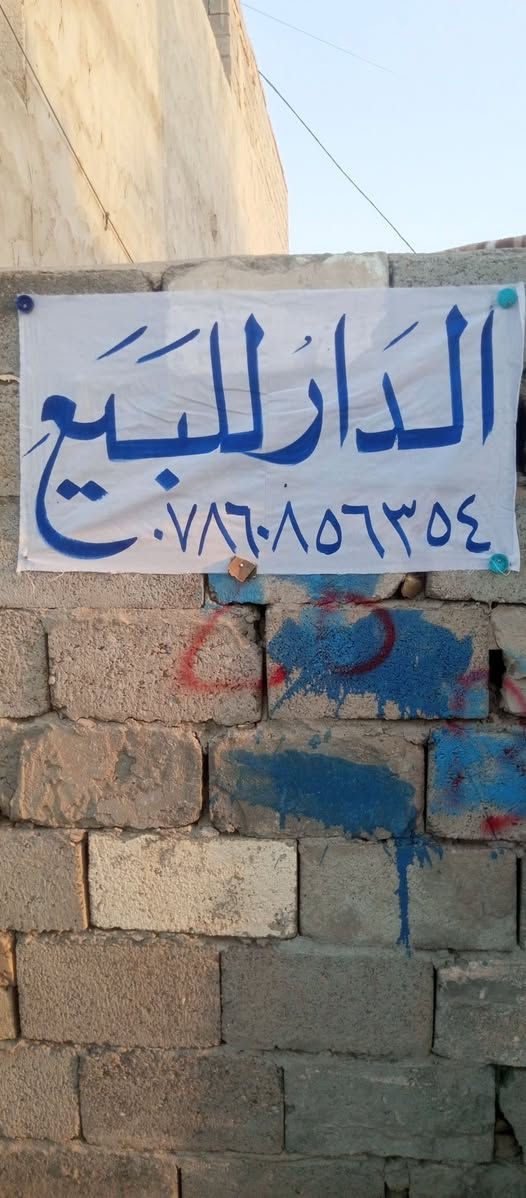 الدَارُ للبَيَع
٠٧٨٦٠٨٥٦٣٥٤